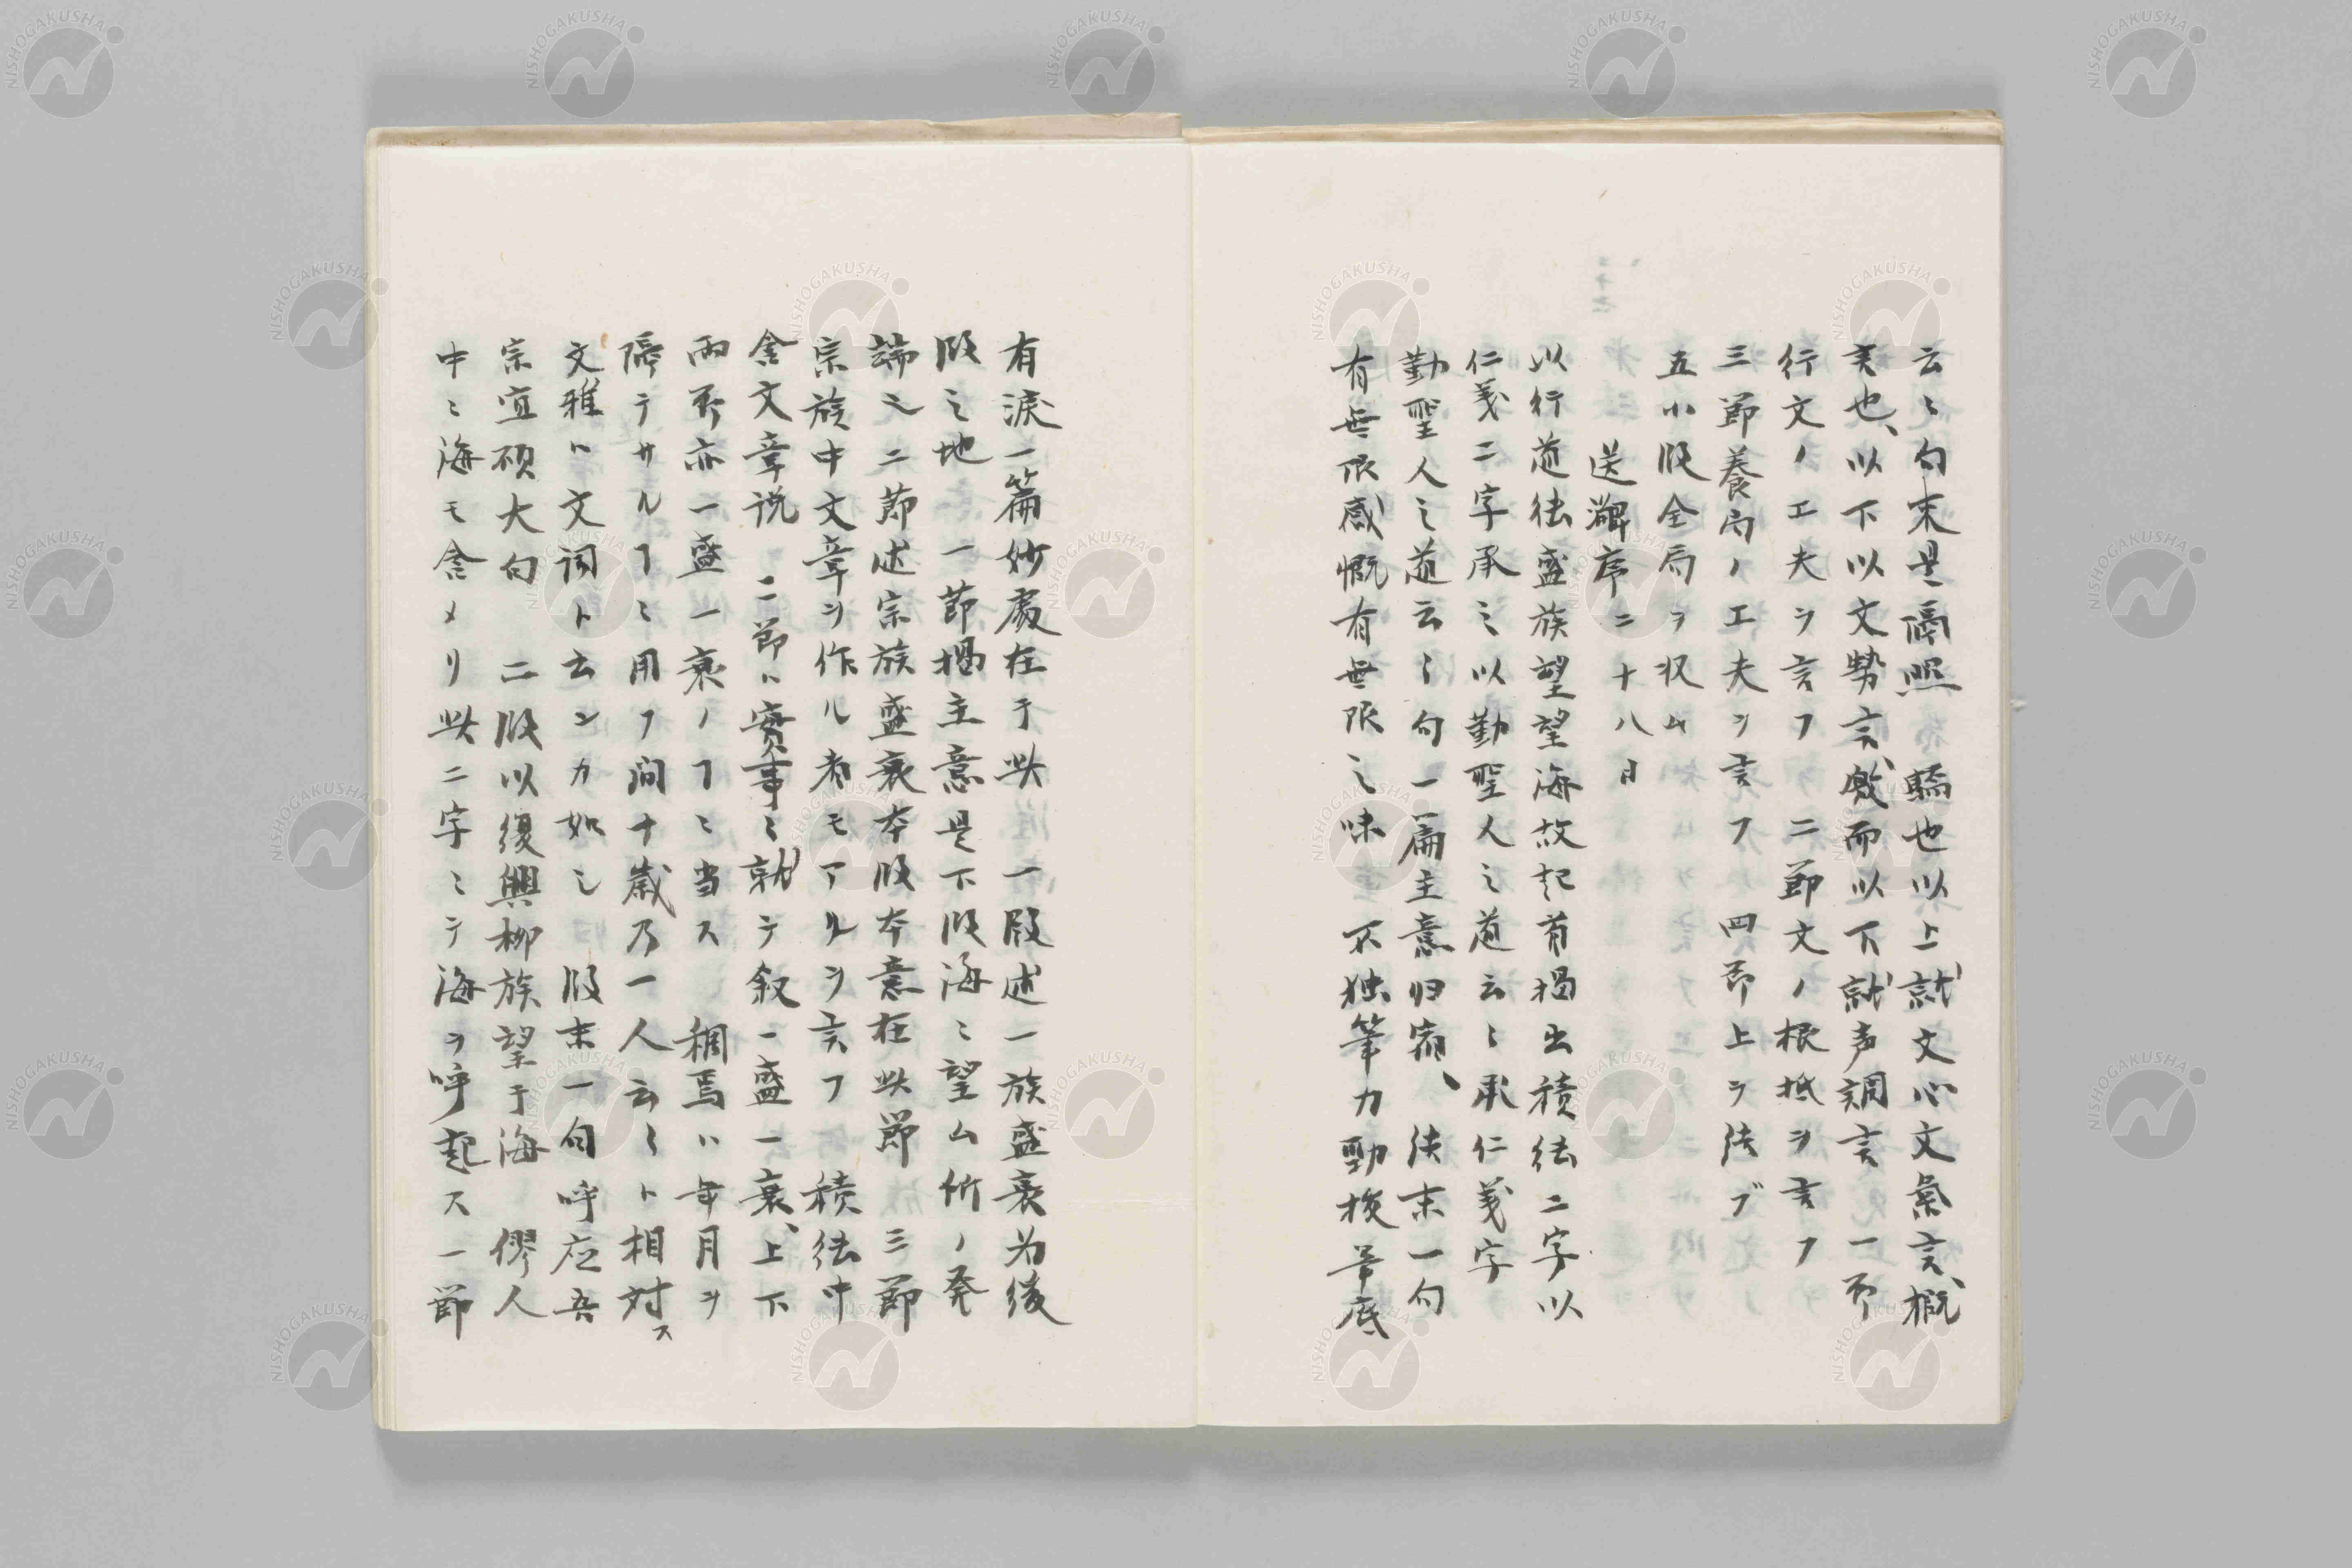 云〻句末是隔照 驕也以上就文心文氣言、概
言也、以下以文勢言、激而以下就声調言一節
行文ノ工夫ヲ言フ 二節文ノ根抵ヲ言フ
三節養内ノ工夫ヲ言フ 四節上ヲ結ブ
五小股全局ヲ収ム
送澥序 二十八日
以行道徳盛族望望海故起首掲出積徳二字以
仁義二字承之以勤聖人之道云〻承仁義字
勤聖人之道云〻句一篇主意归宿、結末一句
有無限感慨有無限之味 不独筆力勁抜筆底
有淚一篇妙處在于此 一段述一族盛衰为後
股之地 一節掲主意是下股海ニ望ム所ノ発
端之二節述宗族盛衰本股本意在此節 三節
宗族中文章ヲ作ル者モアルヲ言フ 積徳中
含文章説 二節ハ實事ニ就テ叙一盛一衰、上下
兩系亦一盛一衰ノヿニ当ス 稠焉ハ年月ヲ
隔テサルヿニ用フ 間十歳乃一人云〻ト相対ス
文雅ハ文詞ト云ンカ如シ 股末一句呼应吾
宗宜碩大句 二股以復興柳族望于海 僇人
中ニ海モ含メリ此二字ニテ海ヲ呼起ス一節
NISHOGAKUSHA